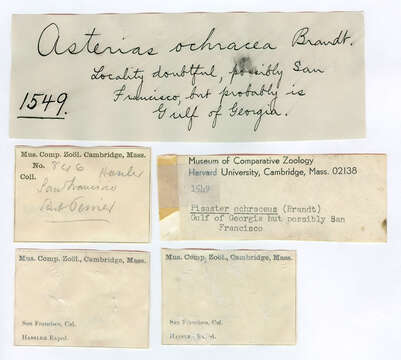 Asterias ochracea Brandt.
Locality doubtful, possibly San
Francisco, but probably is
Gulf of Georgia.
1549.
Mus. Comp. Zoöl. Cambridge, Mass.
No. 846 Hassler
Coll.
San Francisco
Museum of Comparative Zoology
Harvard University, Cambridge, Mass. 02138
1549
Pisaster ochraceus (Brandt)
Gulf of Georgia but possibly San
Francisco
Mus. Comp. Zoöl., Cambridge, Mass.
San Francisco, Cal.
Hassler Exped.
Mus. Comp. Zoöl., Cambridge, Mass.
San Francisco, Cal.
Hassler Exped.